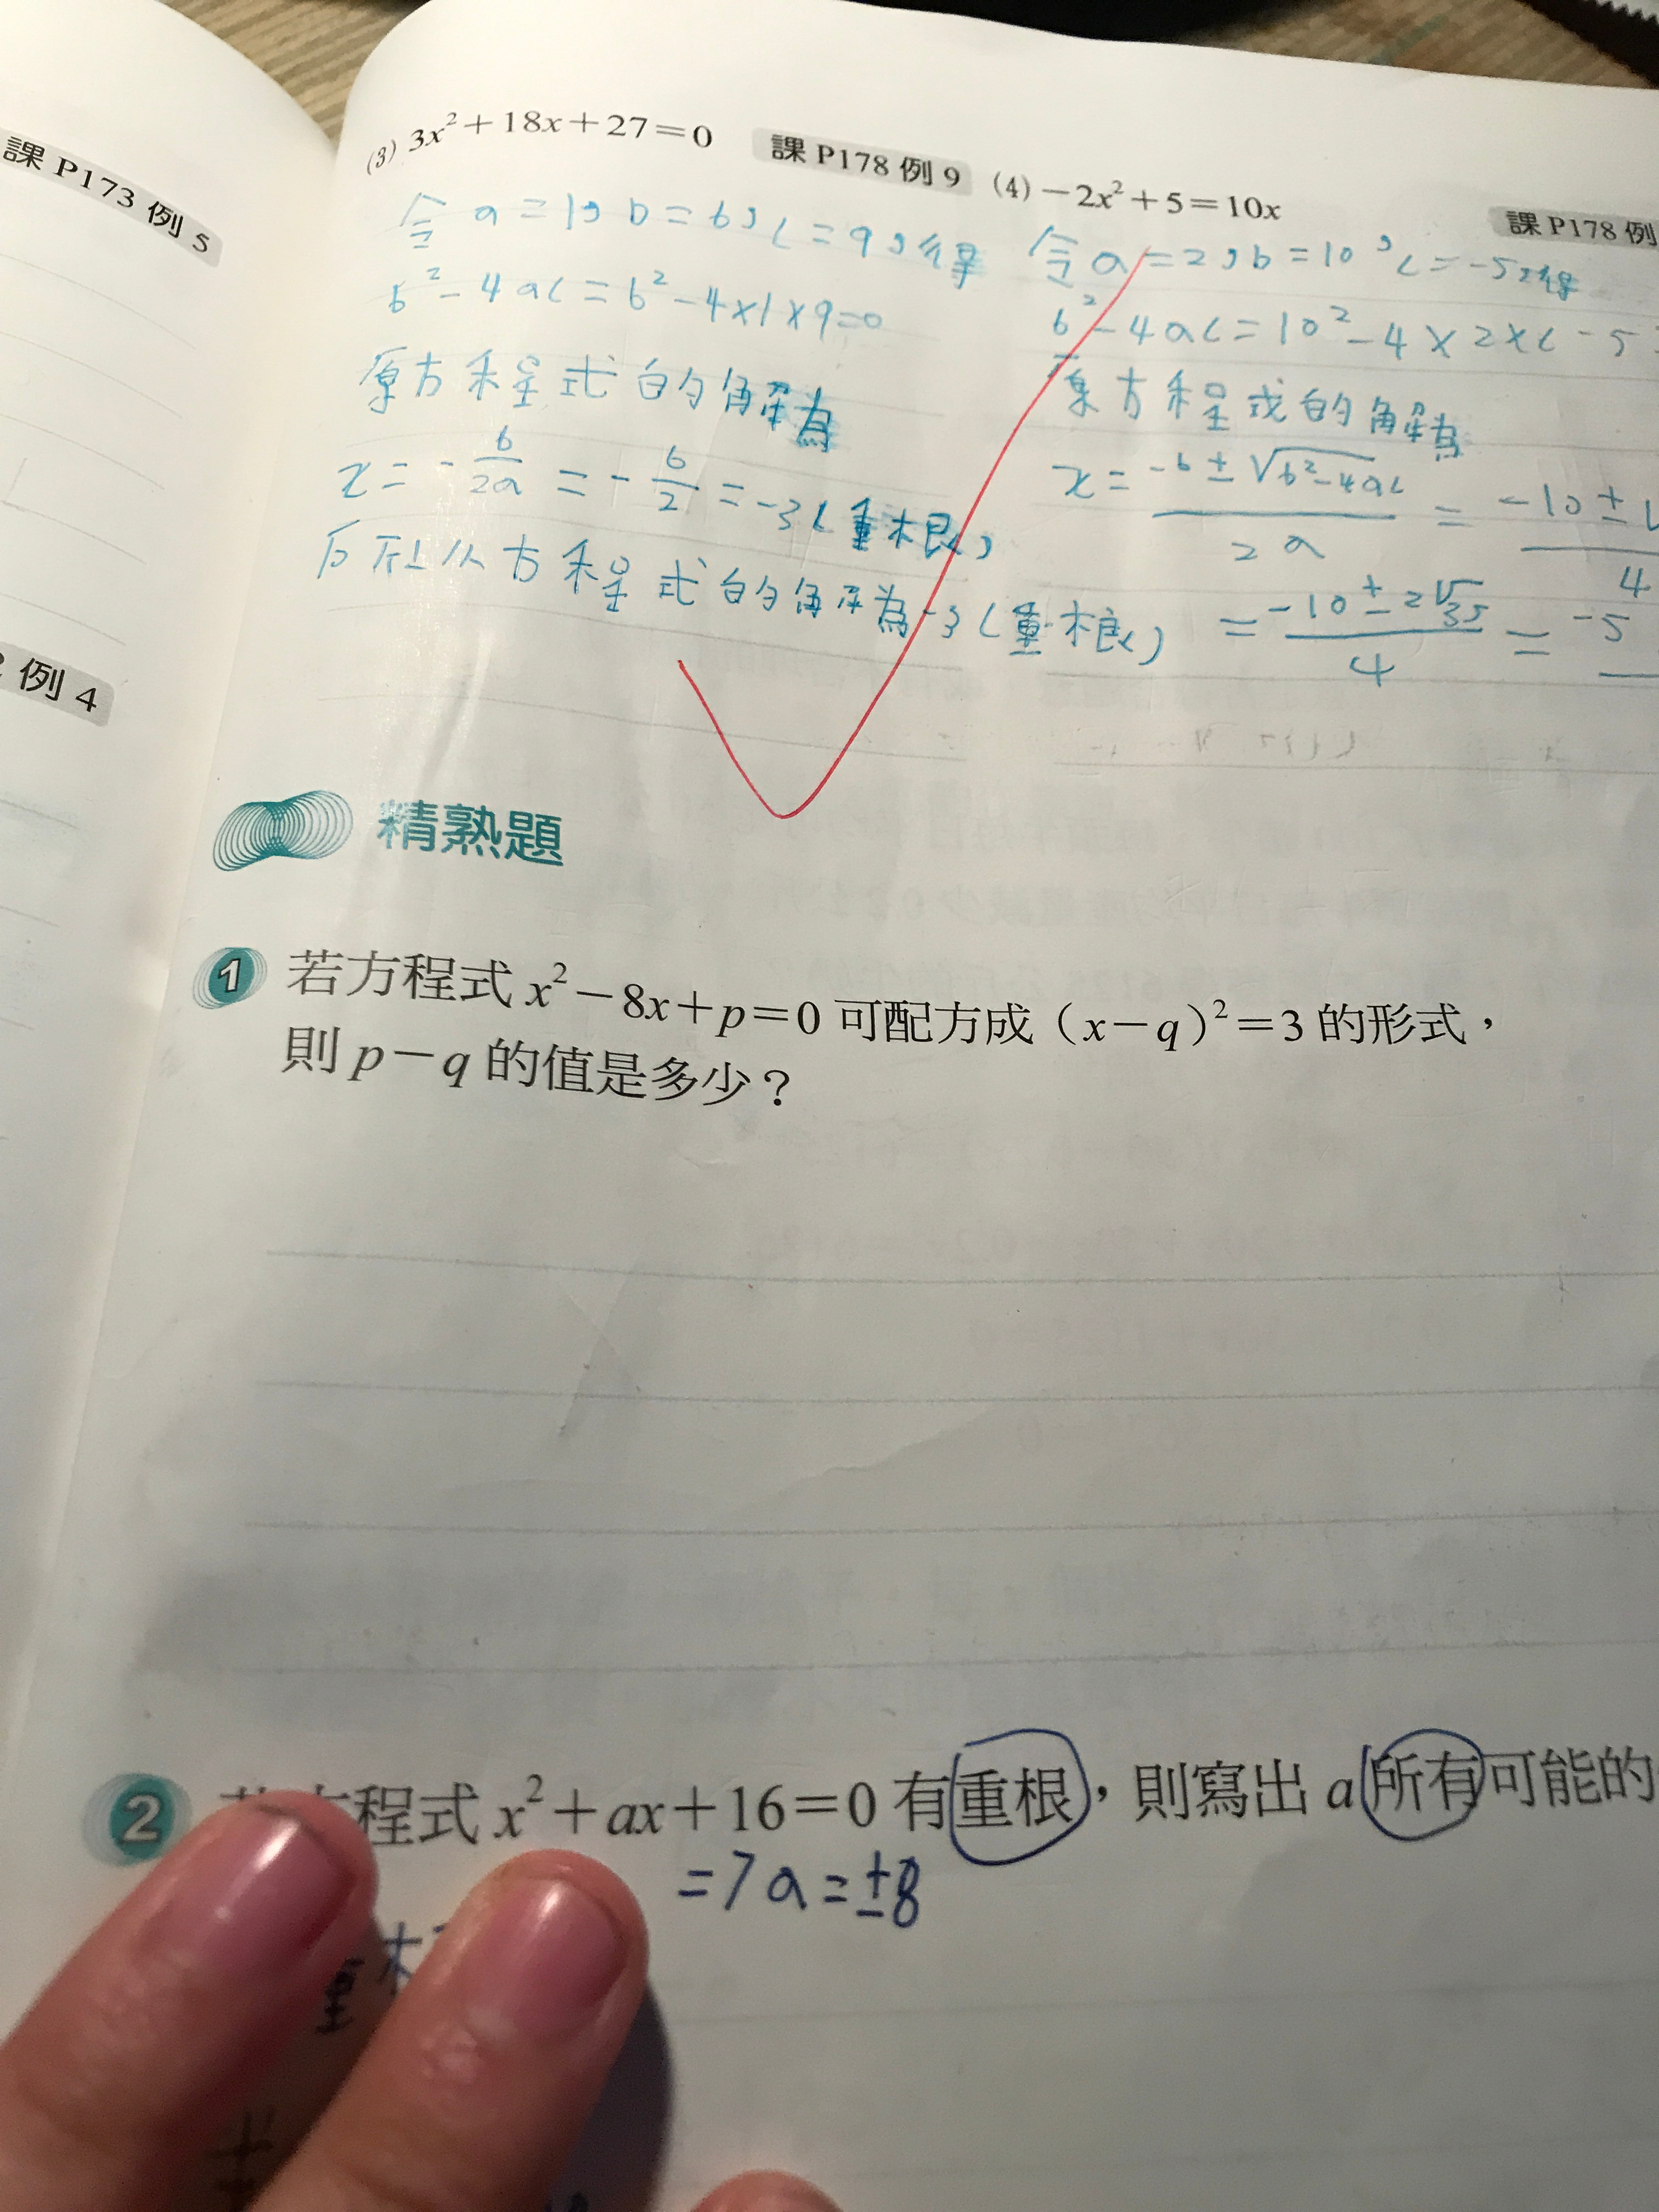 課 P173 例 5
例 4
(3) 3x²+18x+27=0 課 P178 例 9
令 a=1, b=6, c=9, 得
b²-4ac=6²-4×1×9=0
原方程式的解為
x=-b/2a=-6/2=-3(重根)
所以方程式的解為-3(重根)
(4) -2x²+5=10x 課 P178 例
令 a=2, b=10, c=-5, 得
b²-4ac=10²-4×2×(-5
原方程式的解為
x=-b±√b²-4ac/2a=-10±√/4
=-10±2√35/4=-5
精熟題
1 若方程式 x²-8x+p=0 可配方成(x-q)²=3 的形式,
則 p-q 的值是多少?
2 方程式 x²+ax+16=0 有重根,則寫出 a 所有可能的
=7 a=±8
重根